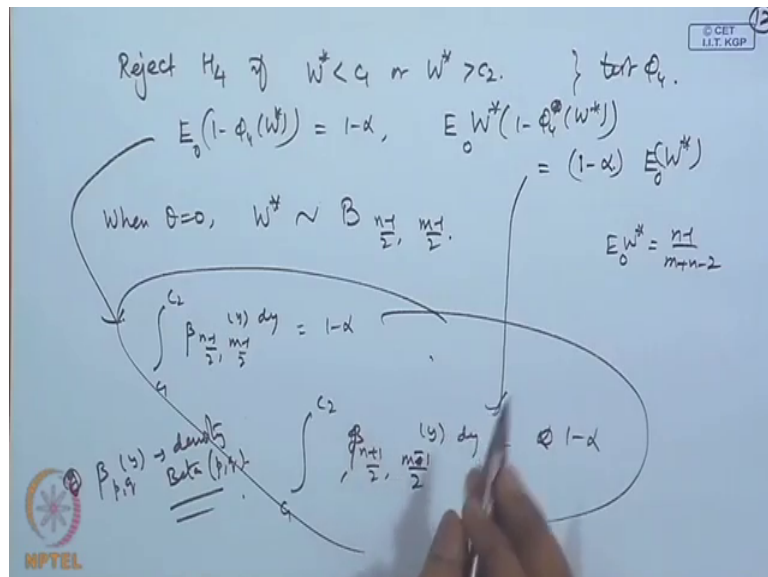 13
© CET
I.I.T. KGP
Reject H₄ if W* < c₁ or W* > c₂. } test φ₄.
E₀(1-φ₄(W*)) = 1-α, E₀ W*(1-φ₄(W*))
= (1-α) E₀(W*)
When θ=0, W* ~ B n-1/2, m-1/2.
E₀W* = n-1/m+n-2
∫c₁^c₂ β n-1/2, m-1/2 (y) dy = 1-α
∫c₁^c₂ β n+1/2, m-1/2 (y) dy = 1-α
β p,q (y) → density
Beta (p,q).
NPTEL